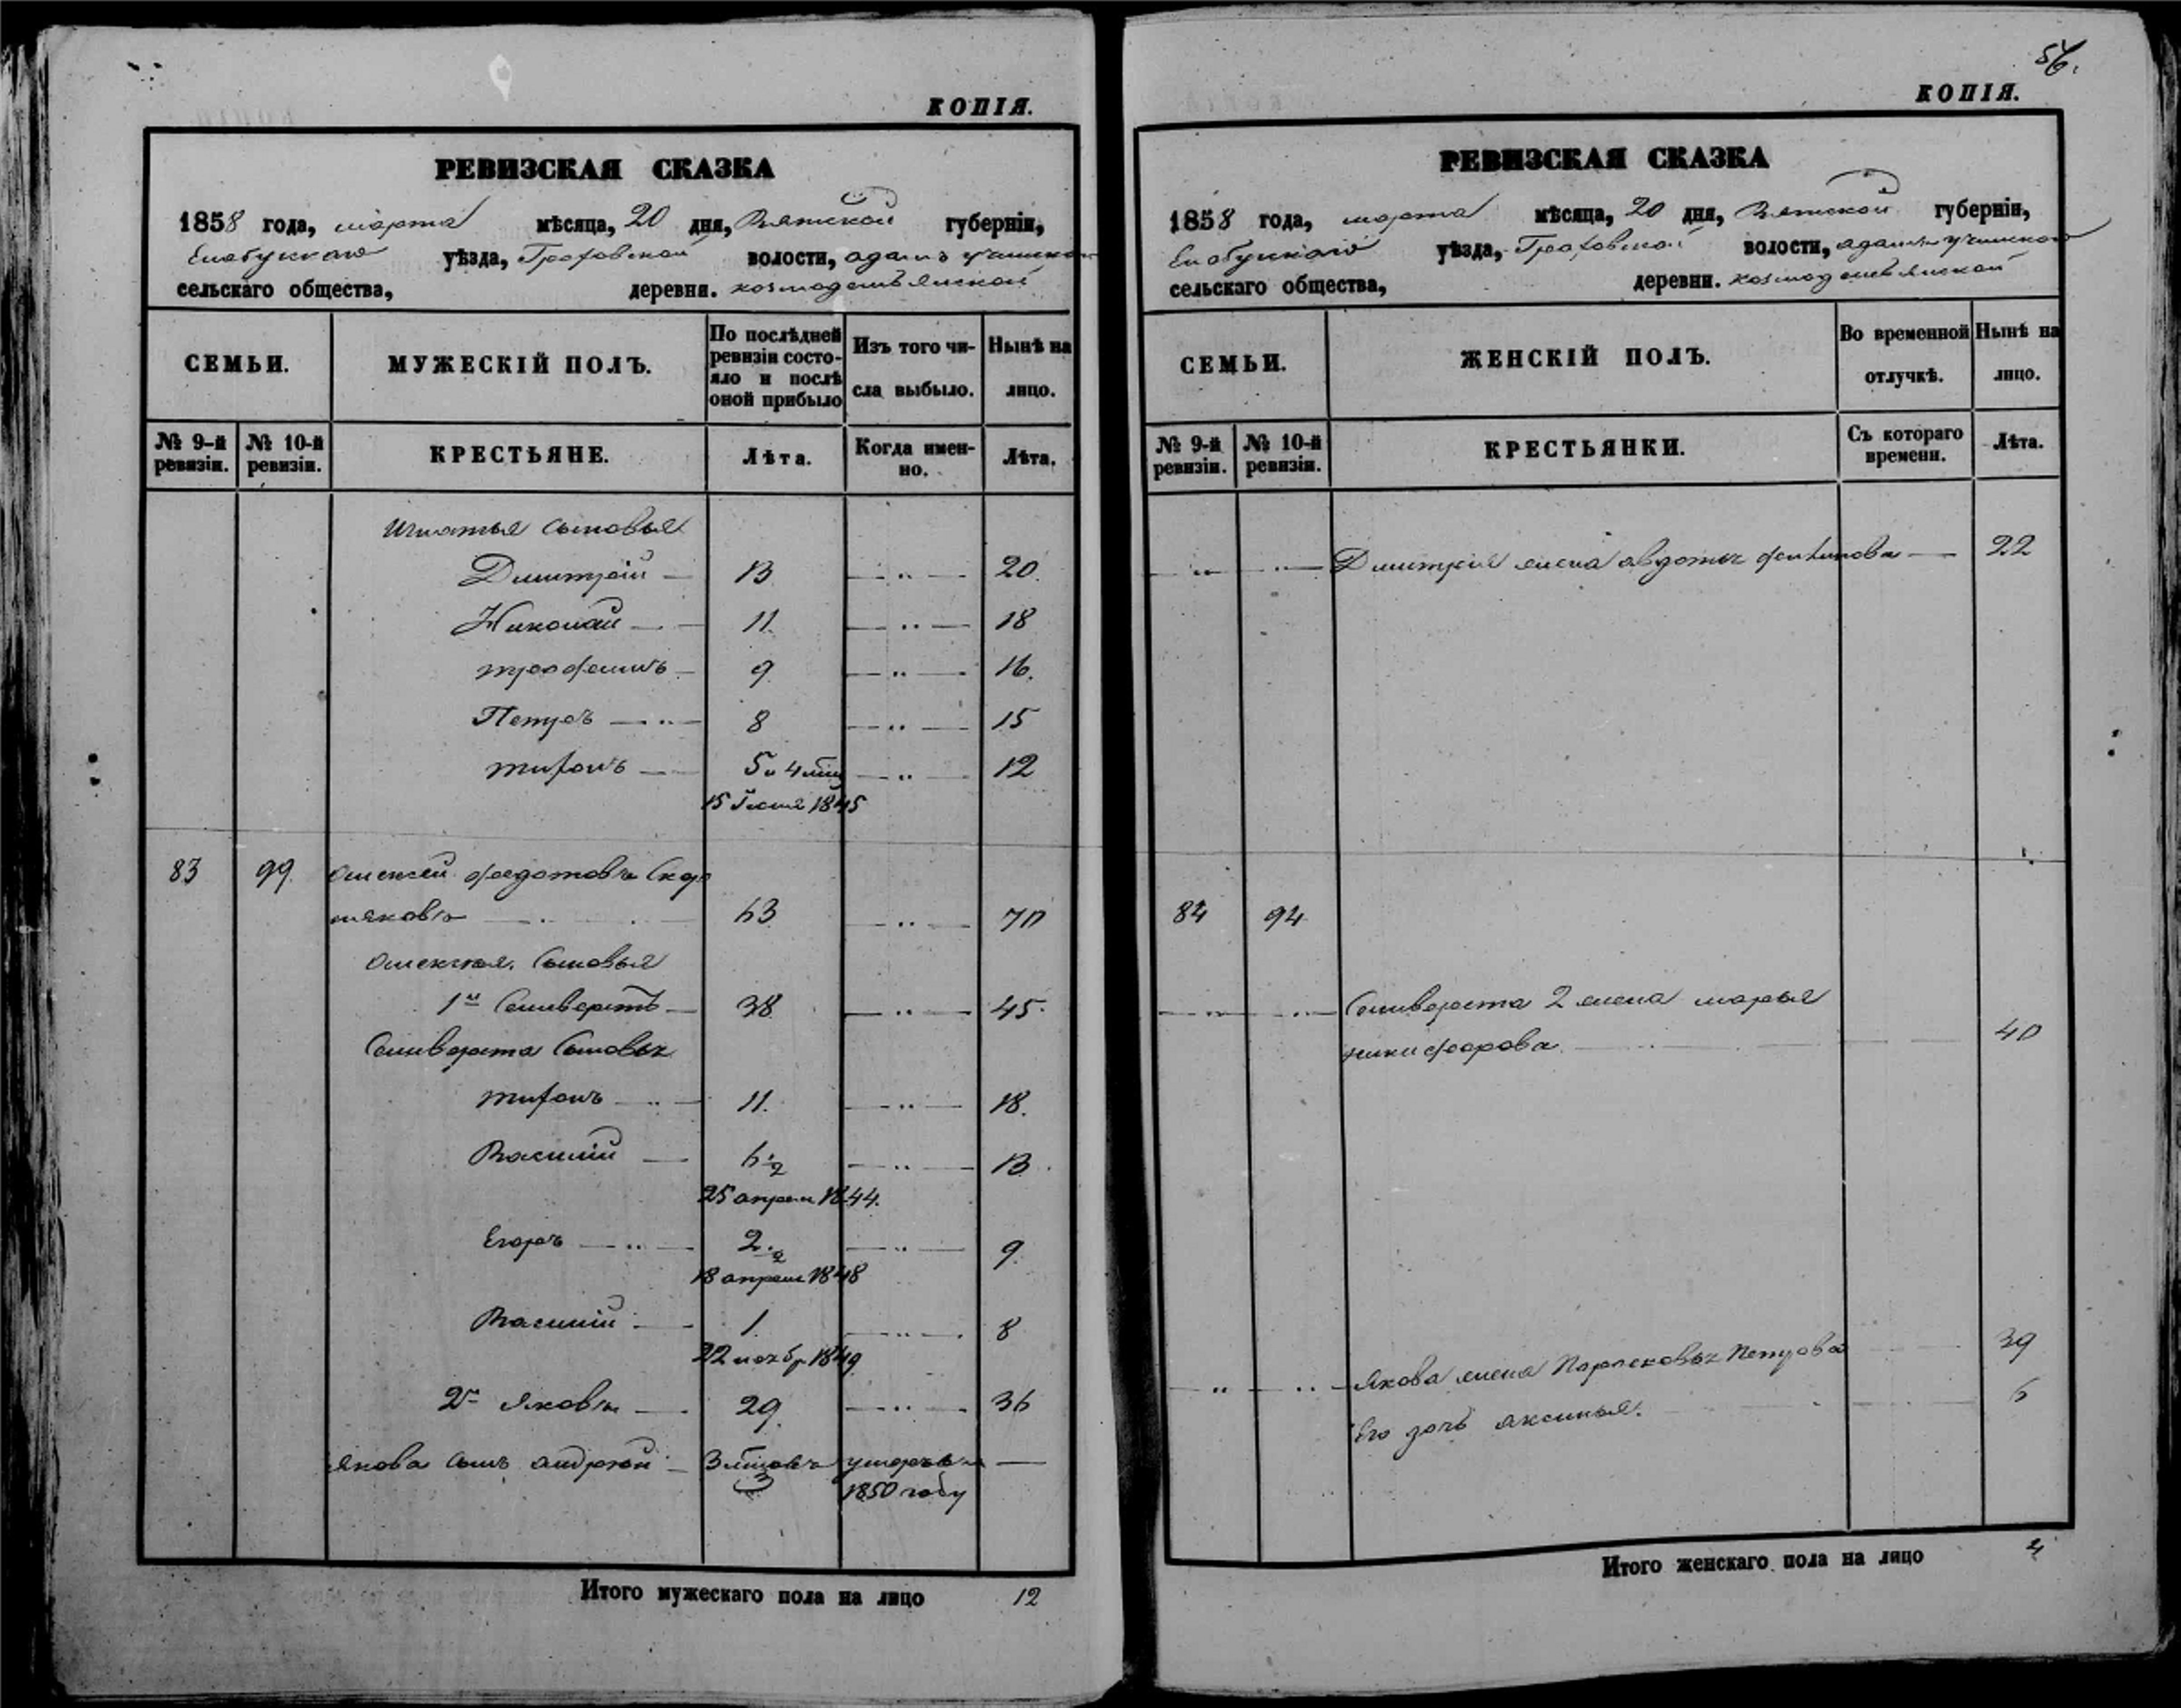 КОПІЯ.
РЕВИЗСКАЯ СКАЗКА
1858 года, марта мѣсяца, 20 дня, Вятской губерніи,
Елабускаго уѣзда, Граховской волости, адамъ учинско
сельскаго общества, деревни. козмодемьянской
СЕМЬИ.
МУЖЕСКІЙ ПОЛЪ.
По послѣдней
ревизіи состо-
яло и послѣ
оной прибыло
Изъ того чи-
сла выбыло.
Нынѣ на
лицо.
№ 9-й
ревизіи.
№ 10-й
ревизіи.
КРЕСТЬЯНЕ.
Лѣта.
Когда имен-
но.
Лѣта.
Игнатья сыновья
Дмитрей — 13 — „ — 20.
Николай — 11. — „ — 18
трофимъ — 9 — „ — 16.
Петръ — „ — 8 — „ — 15
тифонъ — 5 и 4 мѣц — „ — 12
15 Іюня 1845
83 99 алексей федотовъ Скор
няковъ — 63 — „ — 70
алексея. сыновья
1й Селиверстъ — 38 — „ — 45.
Селиверста сыновья
тифонъ — „ — 11. — „ — 18.
Василій — 6 1/2 — „ — 13.
25 апреля 1844.
Егоръ — „ — 2 1/2 — „ — 9.
18 апреля 1848
Василій — 1. — „ — 8
22 нояб 1849
2й яковъ — 29. — „ — 36
якова сынъ андрей — 3 умеръ въ —
3 1850 году
Итого мужескаго пола на лицо 12
56.
КОПІЯ.
РЕВИЗСКАЯ СКАЗКА
1858 года, марта мѣсяца, 20 дня, Вятской губерніи,
Елабускаго уѣзда, Граховской волости, адамъ учинской
сельскаго общества, деревни. козмодемьянской
СЕМЬИ.
ЖЕНСКІЙ ПОЛЪ.
Во временной
отлучкѣ.
Нынѣ на
лицо.
№ 9-й
ревизіи.
№ 10-й
ревизіи.
КРЕСТЬЯНКИ.
Съ котораго
времени.
Лѣта.
— „ — „ — Дмитрея жена авдотья — 22
84 94
— „ — „ — Селиверста 2 жена марья
никифорова — 40
— „ — „ — якова жена Парасковья Петрова 39
Его дочь аксинья. 6
Итого женскаго пола на лицо 4